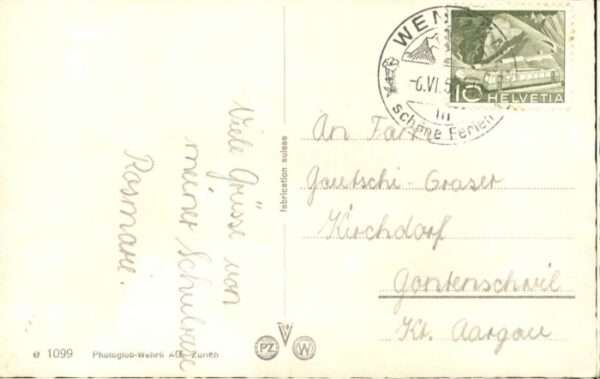 WEN
-6.VI.5
schöne Ferien
10 HELVETIA
Viele Grüsse von
meiner Schulreise
Rosmarie.
fabrication suisse
An Fam.
Gautschi-Graser
Kirchdorf
Gontenschwil
Kt. Aargau
e 1099 Photoglob-Wehrli AG. Zürich
PZ W